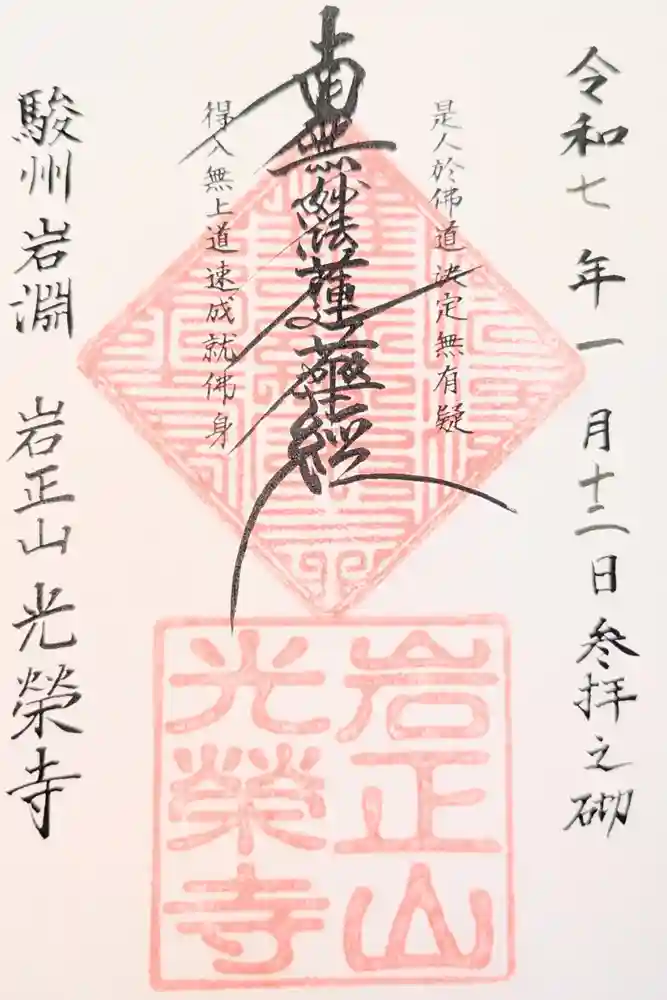 令和七年一月十二日参拜之砌
是人於佛道決定無有疑
南無妙法蓮華経
得入無上道速成就佛身
駿州岩淵 岩正山光榮寺
岩正山
光榮寺